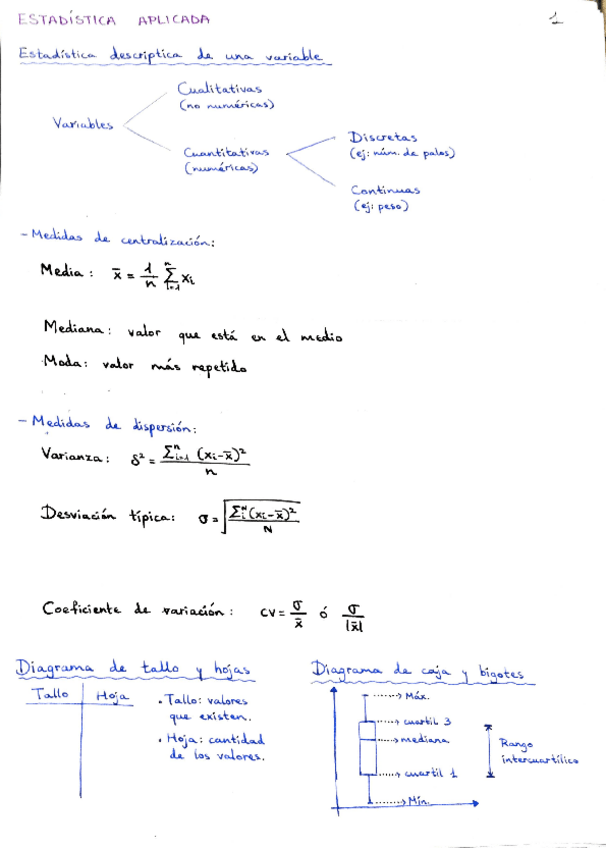 ESTADÍSTICA APLICADA
1
Estadística descriptica de una variable
Variables
Cualitativas
(no numéricas)
Cuantitativas
(numéricas)
Discretas
(ej: núm. de palos)
Continuas
(ej: peso)
- Medidas de centralización:
Media: x̄ = 1/n Σⁿᵢ₌₁ xᵢ
Mediana: valor que está en el medio
Moda: valor más repetido
- Medidas de dispersión:
Varianza: δ² = Σⁿᵢ₌₁ (xᵢ-x̄)² / n
Desviación típica: σ = √(Σᵢᴺ(xᵢ-x̄)² / N)
Coeficiente de variación: CV = σ/x̄ ó σ/|x̄|
Diagrama de tallo y hojas
Tallo | Hoja
• Tallo: valores
que existen.
• Hoja: cantidad
de los valores.
Diagrama de caja y bigotes
Máx.
cuartil 3
mediana
cuartil 1
Mín.
Rango
intercuartílico